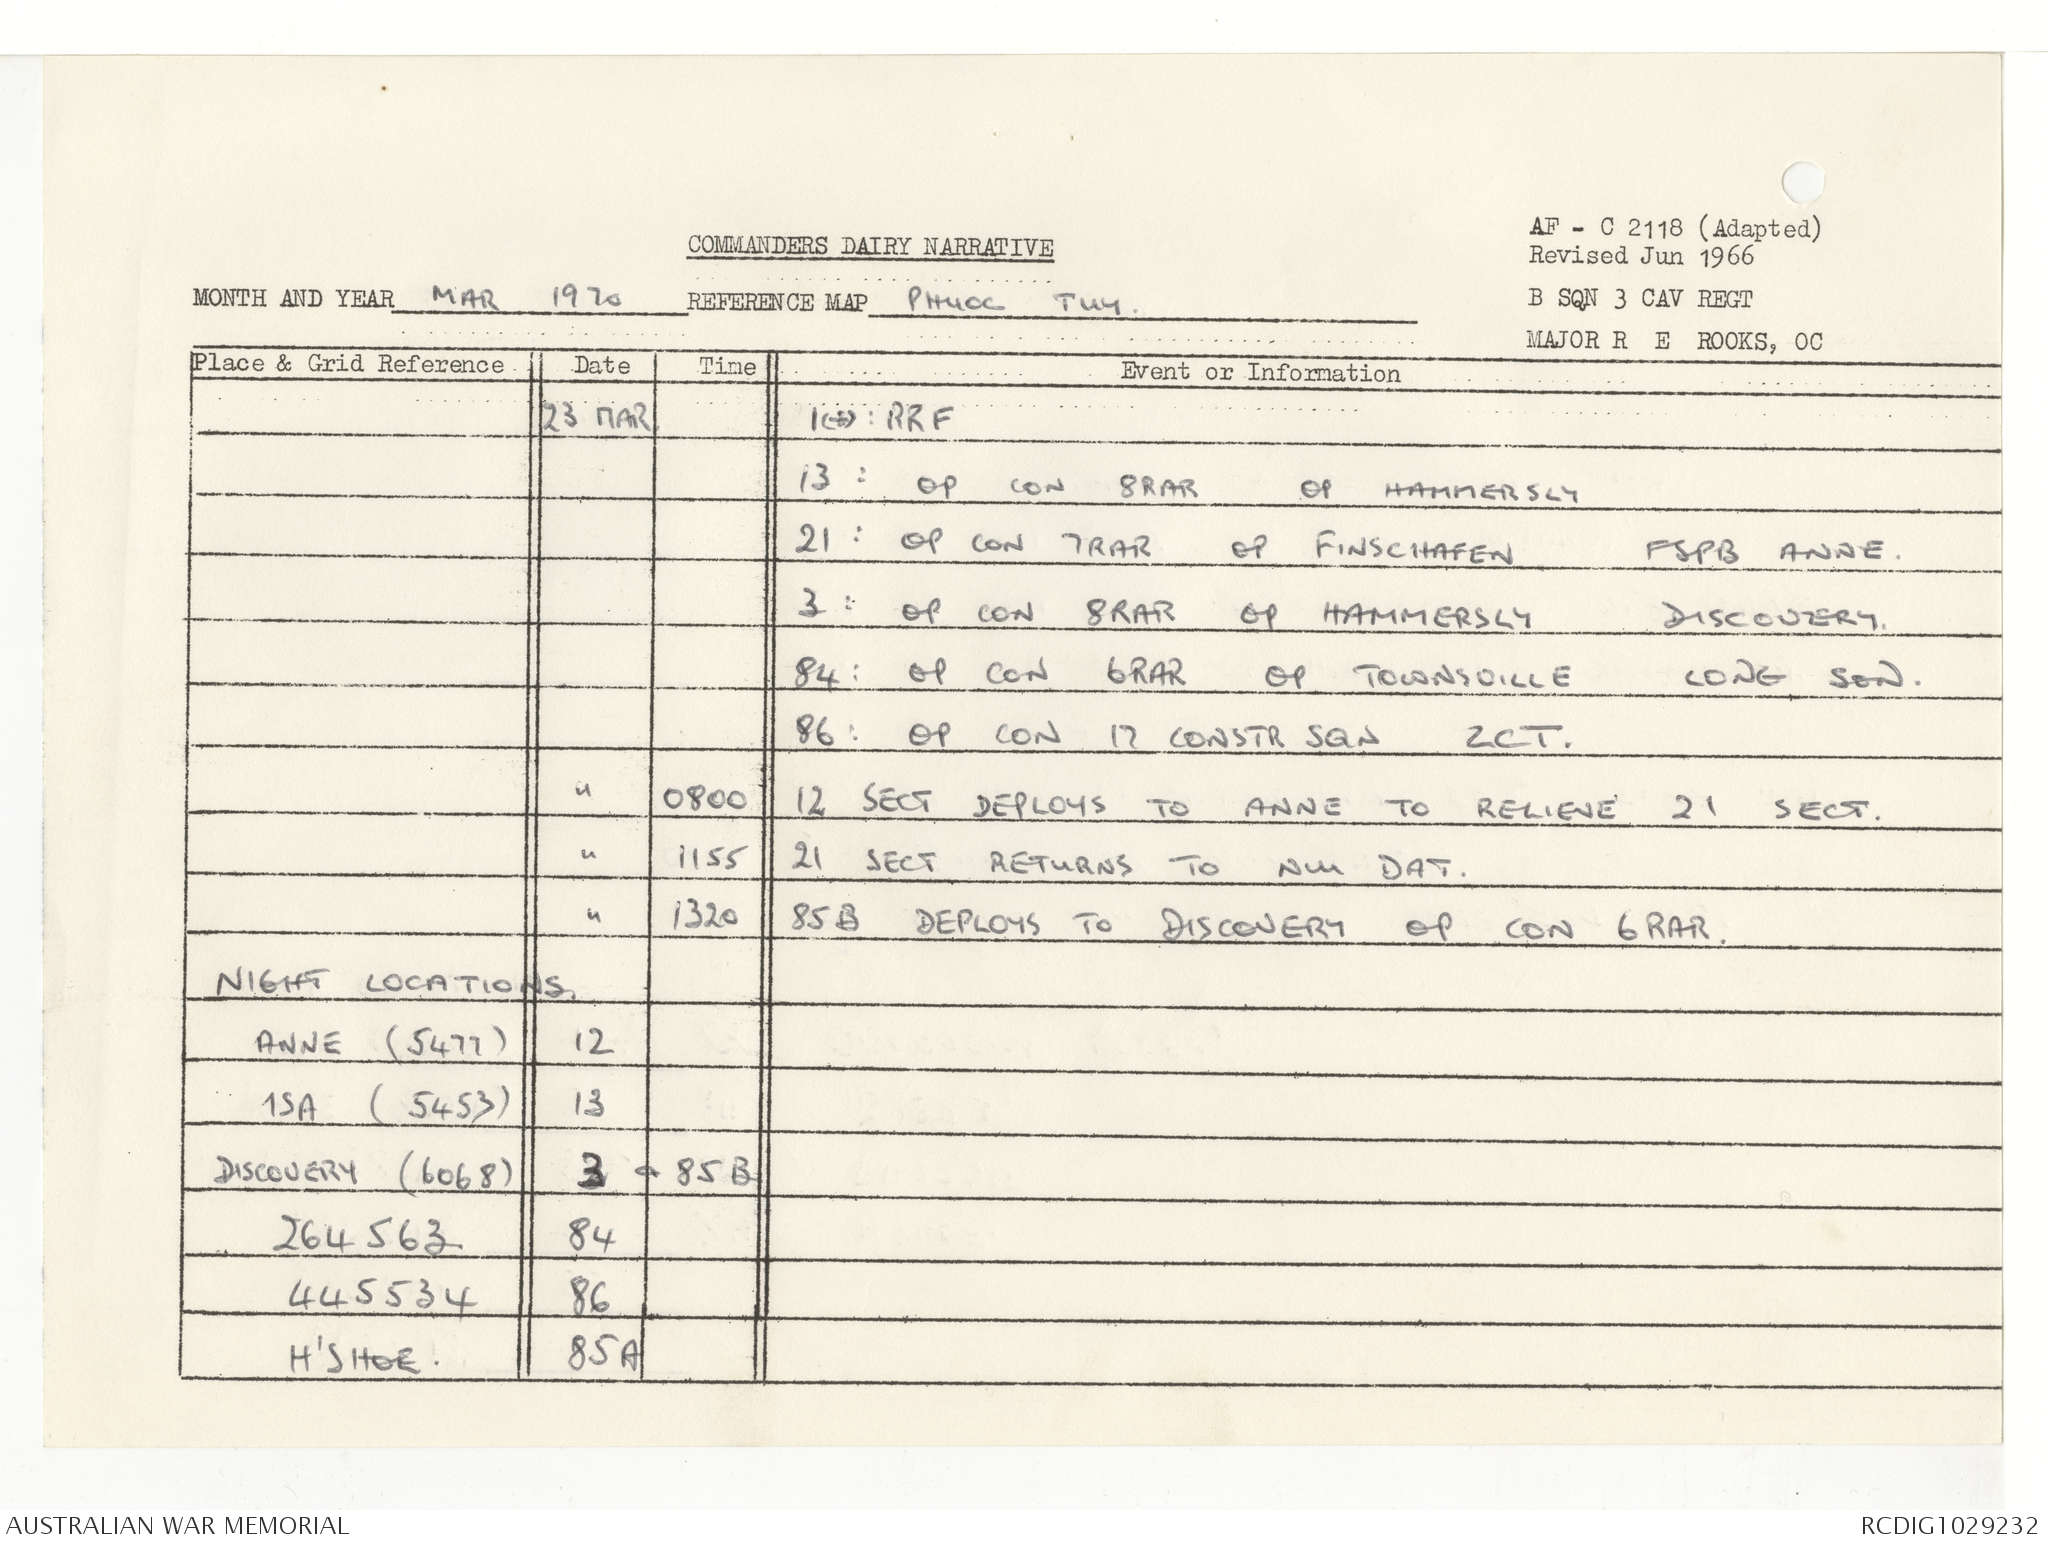 AF - C 2118 (Adapted)
Revised Jun 1966
COMMANDERS DAIRY NARRATIVE
MONTH AND YEAR MAR 1970 REFERENCE MAP PHUOC TUY.
B SQN 3 CAV REGT
MAJOR R E ROOKS, OC
Place & Grid Reference Date Time Event or Information
23 MAR : RRF
13 : OP CON 8RAR OP HAMMERSLY
21 : OP CON 7RAR OP FINSCHAFEN FSPB ANNE.
3 : OP CON 8RAR OP HAMMERSLY DISCOVERY.
84 : OP CON 6RAR OP TOWNSVILLE LONG SON.
86 : OP CON 17 CONSTR SQN LCT.
" 0800 12 SECT DEPLOYS TO ANNE TO RELIEVE 21 SECT.
" 1155 21 SECT RETURNS TO NUI DAT.
" 1320 85B DEPLOYS TO DISCOVERY OP CON 6RAR.
NIGHT LOCATIONS.
ANNE (5477) 12
1SA (5453) 13
DISCOVERY (6068) 3 + 85B
264563 84
445534 86
H'SHOE. 85A
AUSTRALIAN WAR MEMORIAL RCDIG1029232